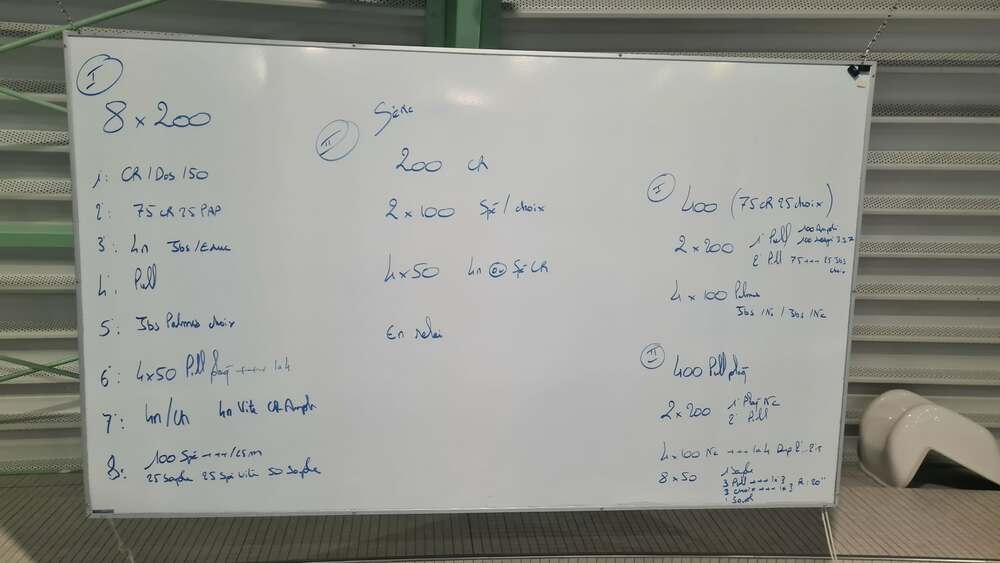 I
8 x 200
1: CR / Dos / 50
2: 75 CR 25 PAP
3: 4n Jbs / Educ
4: Pull
5: Jbs Palmes choix
6: 4x50 Pull plaq ---→ 1 à 4
7: 4n/CR 4n Vite CR Ampli
8: 100 Spé ---→ /25m
25 Souple 25 Spé Vite 50 Souple
II
Série
200 CR
2 x 100 Spé / choix
4 x 50 4n ou Spé CR
En relai
I
400 (75 CR 25 choix)
2 x 200 1: Pull 100 Ampli
100 3.5.7
2: Pull 75 ---→ 25 Jbs
choix
4 x 100 Palmes
Jbs / Nc / Jbs / Nc
II
400 Pull plaq
2 x 200 1: Plaq Nc
2: Pull
4 x 100 Nc ---→ 1 à 4
8 x 50 1 Souple
3 Pull ---→ 1 à 3 R: 20"
3 choix ---→ 1 à 3
1 Soupl